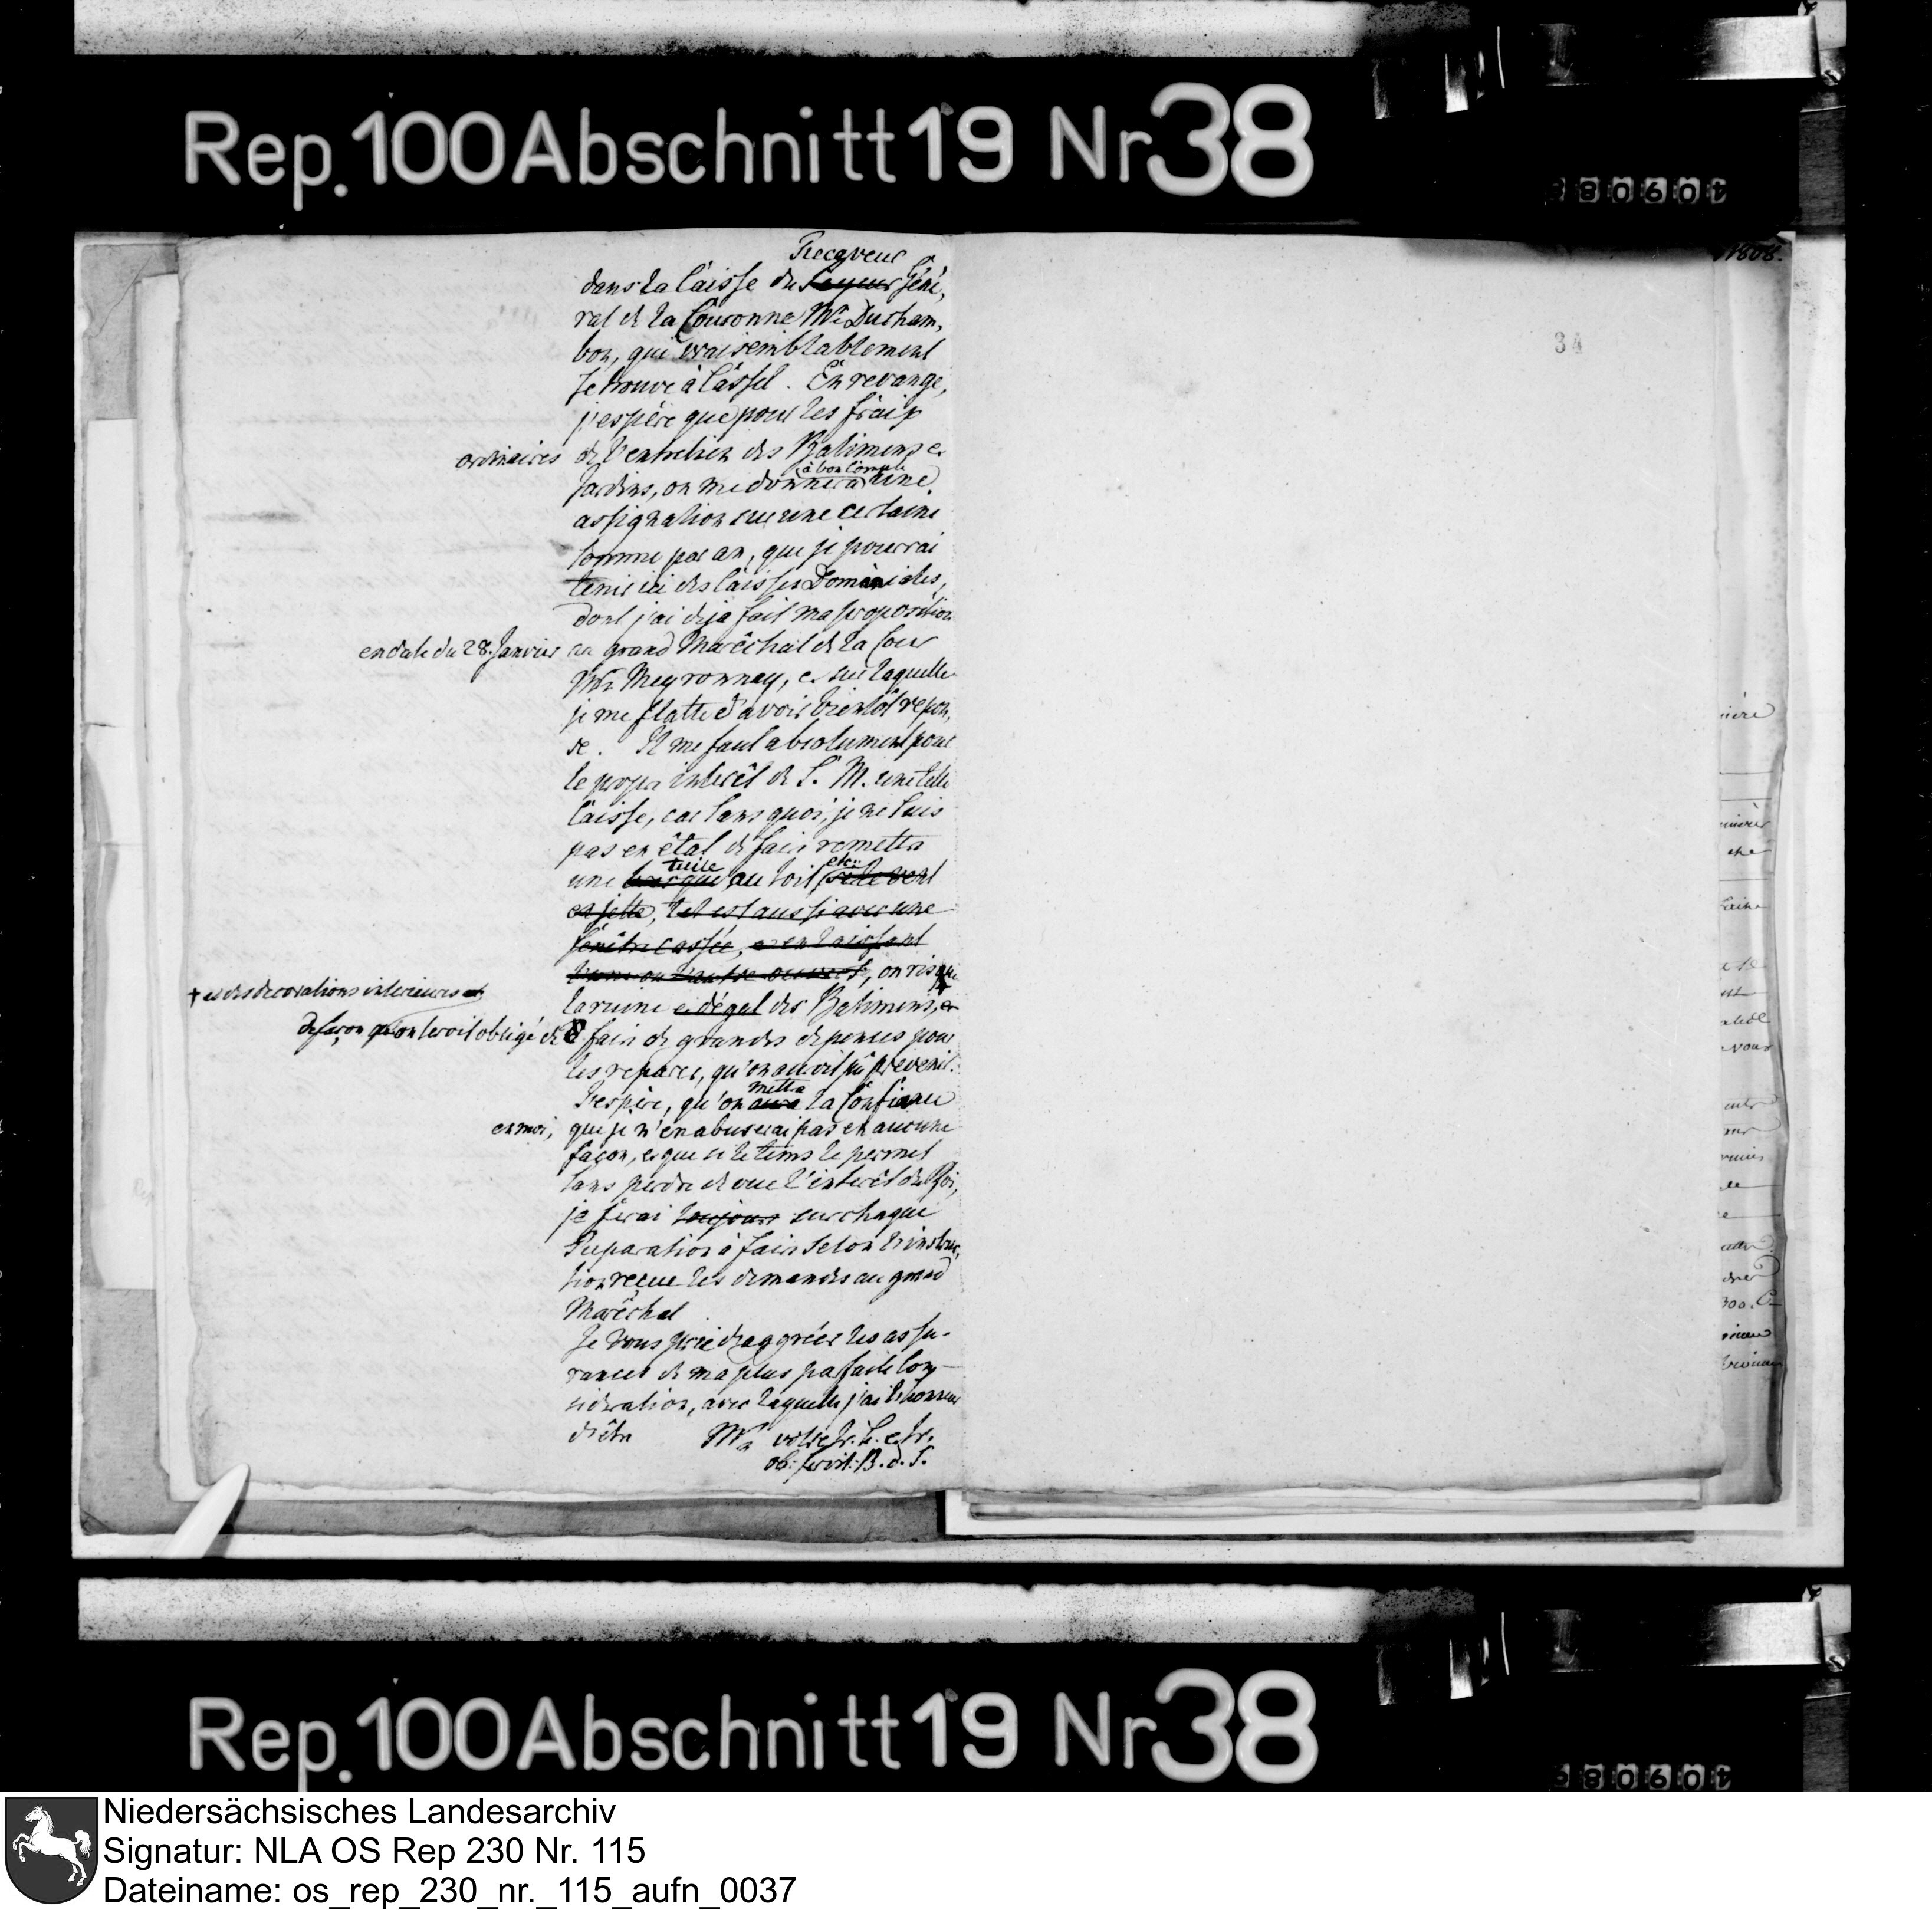 Rep. 100 Abschnitt 19 Nr 38
Recqveur
dans la Caisse du Payeur Géné,
ral de la Couronne Mr. Ducham,
bon, qui vraisemblablement
se trouve à Cassel. En revange,
j'espère que pour les fraix
ordinaires de l'entretien des Batimens et
à bon Compte
Jardins, on me donnera une
assignation sur une certaine
somme par an, que je pourrai
tenir ici des Caisses Domaniales,
dont j'ai deja fait ma proposition
en date du 28. Janvier au grand Maréchal de la Cour
Mr. Meyronnay, et sur laquelle
je me flatte d'avoir bientôt repon,
se. Il me faut absolument pour
le propre interêt de S. M. une telle
Caisse, car sans quoi, je ne suis
pas en état de faire remettre
tuile etc:
une brique au toit, si le vent
en jette, tel est aussi avec une
fenêtre cassée, et en laissant
l'une ou l'autre ouverte, on risque
† et des decorations interieures et
la ruine et dégat des Batimens, et
de façon qu'on seroit obligé de faire de grandes depenses pour
les reparer, qu'on auroit pû prevenir.
mettra
J'espère, qu'on aura la Confiance
en moi, que je n'en abuserai pas en aucune
façon, et que si le tems le permet
sans perdre de vue l'interêt du Roi,
je ferai toujours sur chaque
Reparation à faire selon l'instruc,
tion reçue les demandes au grand
Maréchal.
Je Vous prie d'aggréer les assu-
rances de ma plus parfaite Con-
sideration, avec laquelle j'ai l'honneur
d'être Mr. votre tr. h. et tr.
ob: servit: B. d. S.
1808.
34
Rep. 100 Abschnitt 19 Nr 38
Niedersächsisches Landesarchiv
Signatur: NLA OS Rep 230 Nr. 115
Dateiname: os_rep_230_nr._115_aufn_0037